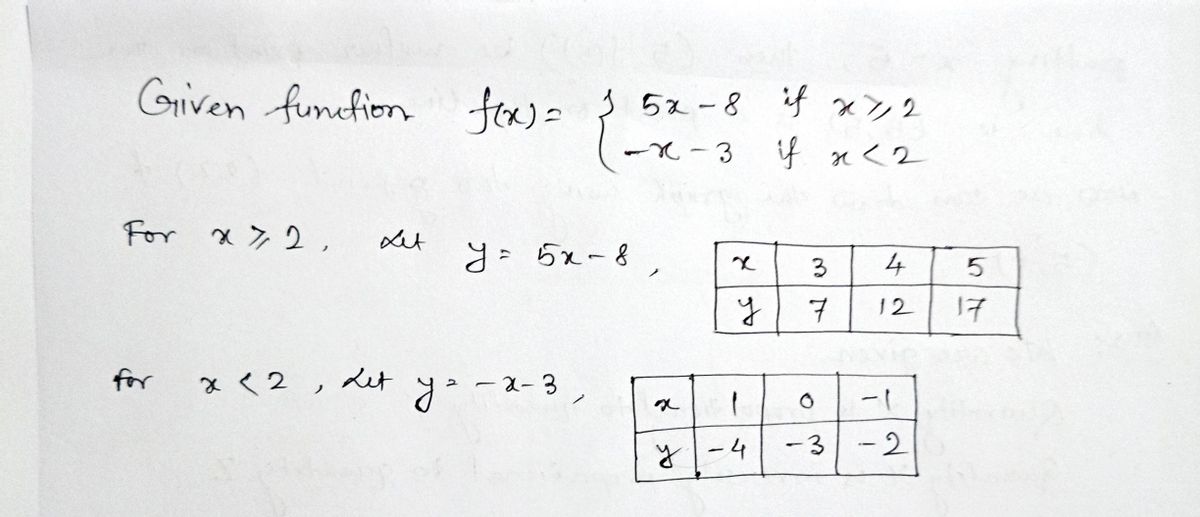 Given function f(x) = { 5x - 8 if x ≥ 2
-x - 3 if x < 2
For x ≥ 2, Let y = 5x - 8,
x 3 4 5
y 7 12 17
for x < 2, Let y = -x - 3,
x 1 0 -1
y -4 -3 -2